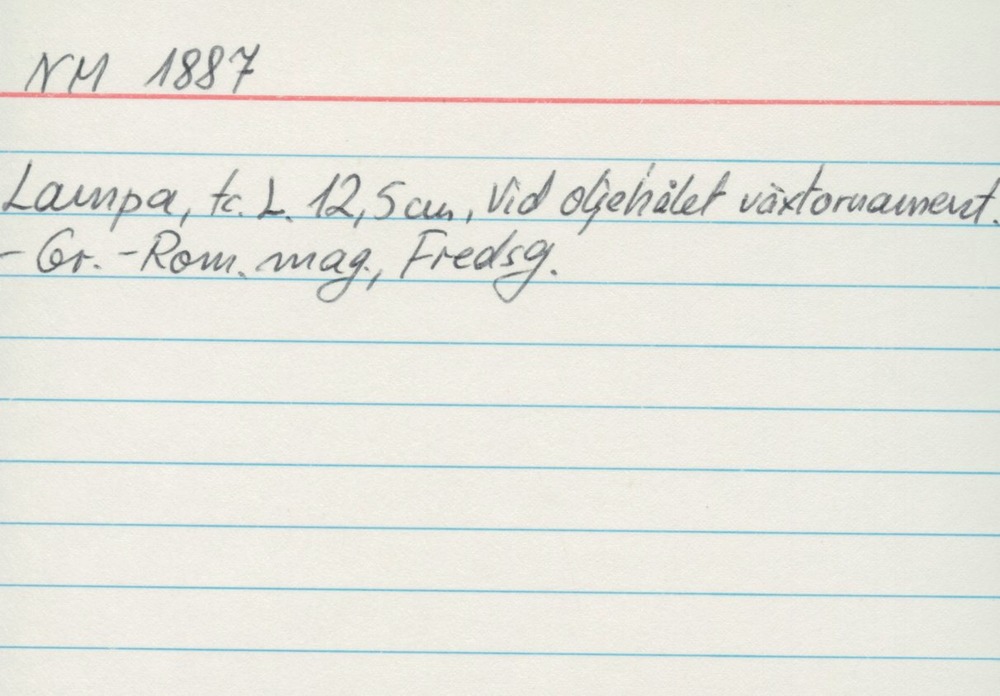 NM 1887
Lampa, tc. L. 12,5 cm, Vid oljehålet växtornament.
- Gr. - Rom. mag., Fredsg.